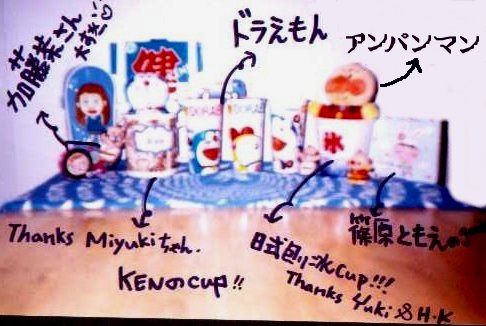 加藤茶さん
大すき!
ドラえもん
アンパンマン
DORAE
氷
Thanks Miyukiちゃん.
KENのcup!!
日式刨冰Cup!!!
Thanks Yuki & H.K
篠原ともえの